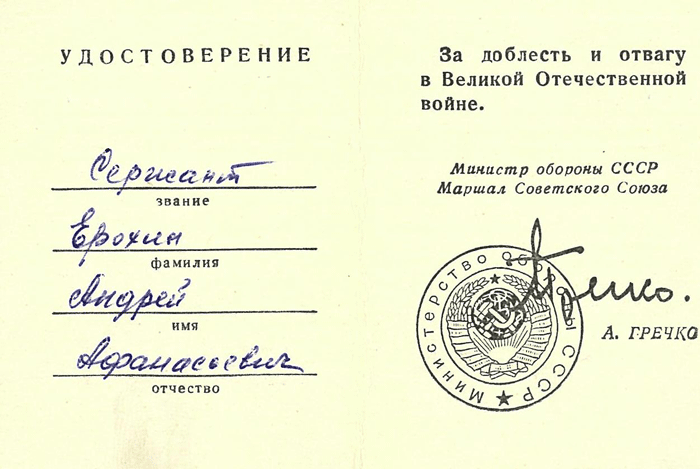 УДОСТОВЕРЕНИЕ
Сержант
звание
Ерохин
фамилия
Андрей
имя
Афанасьевич
отчество
За доблесть и отвагу
в Великой Отечественной
войне.
Министр обороны СССР
Маршал Советского Союза
Министерство обороны СССР
Гречко.
А. ГРЕЧКО